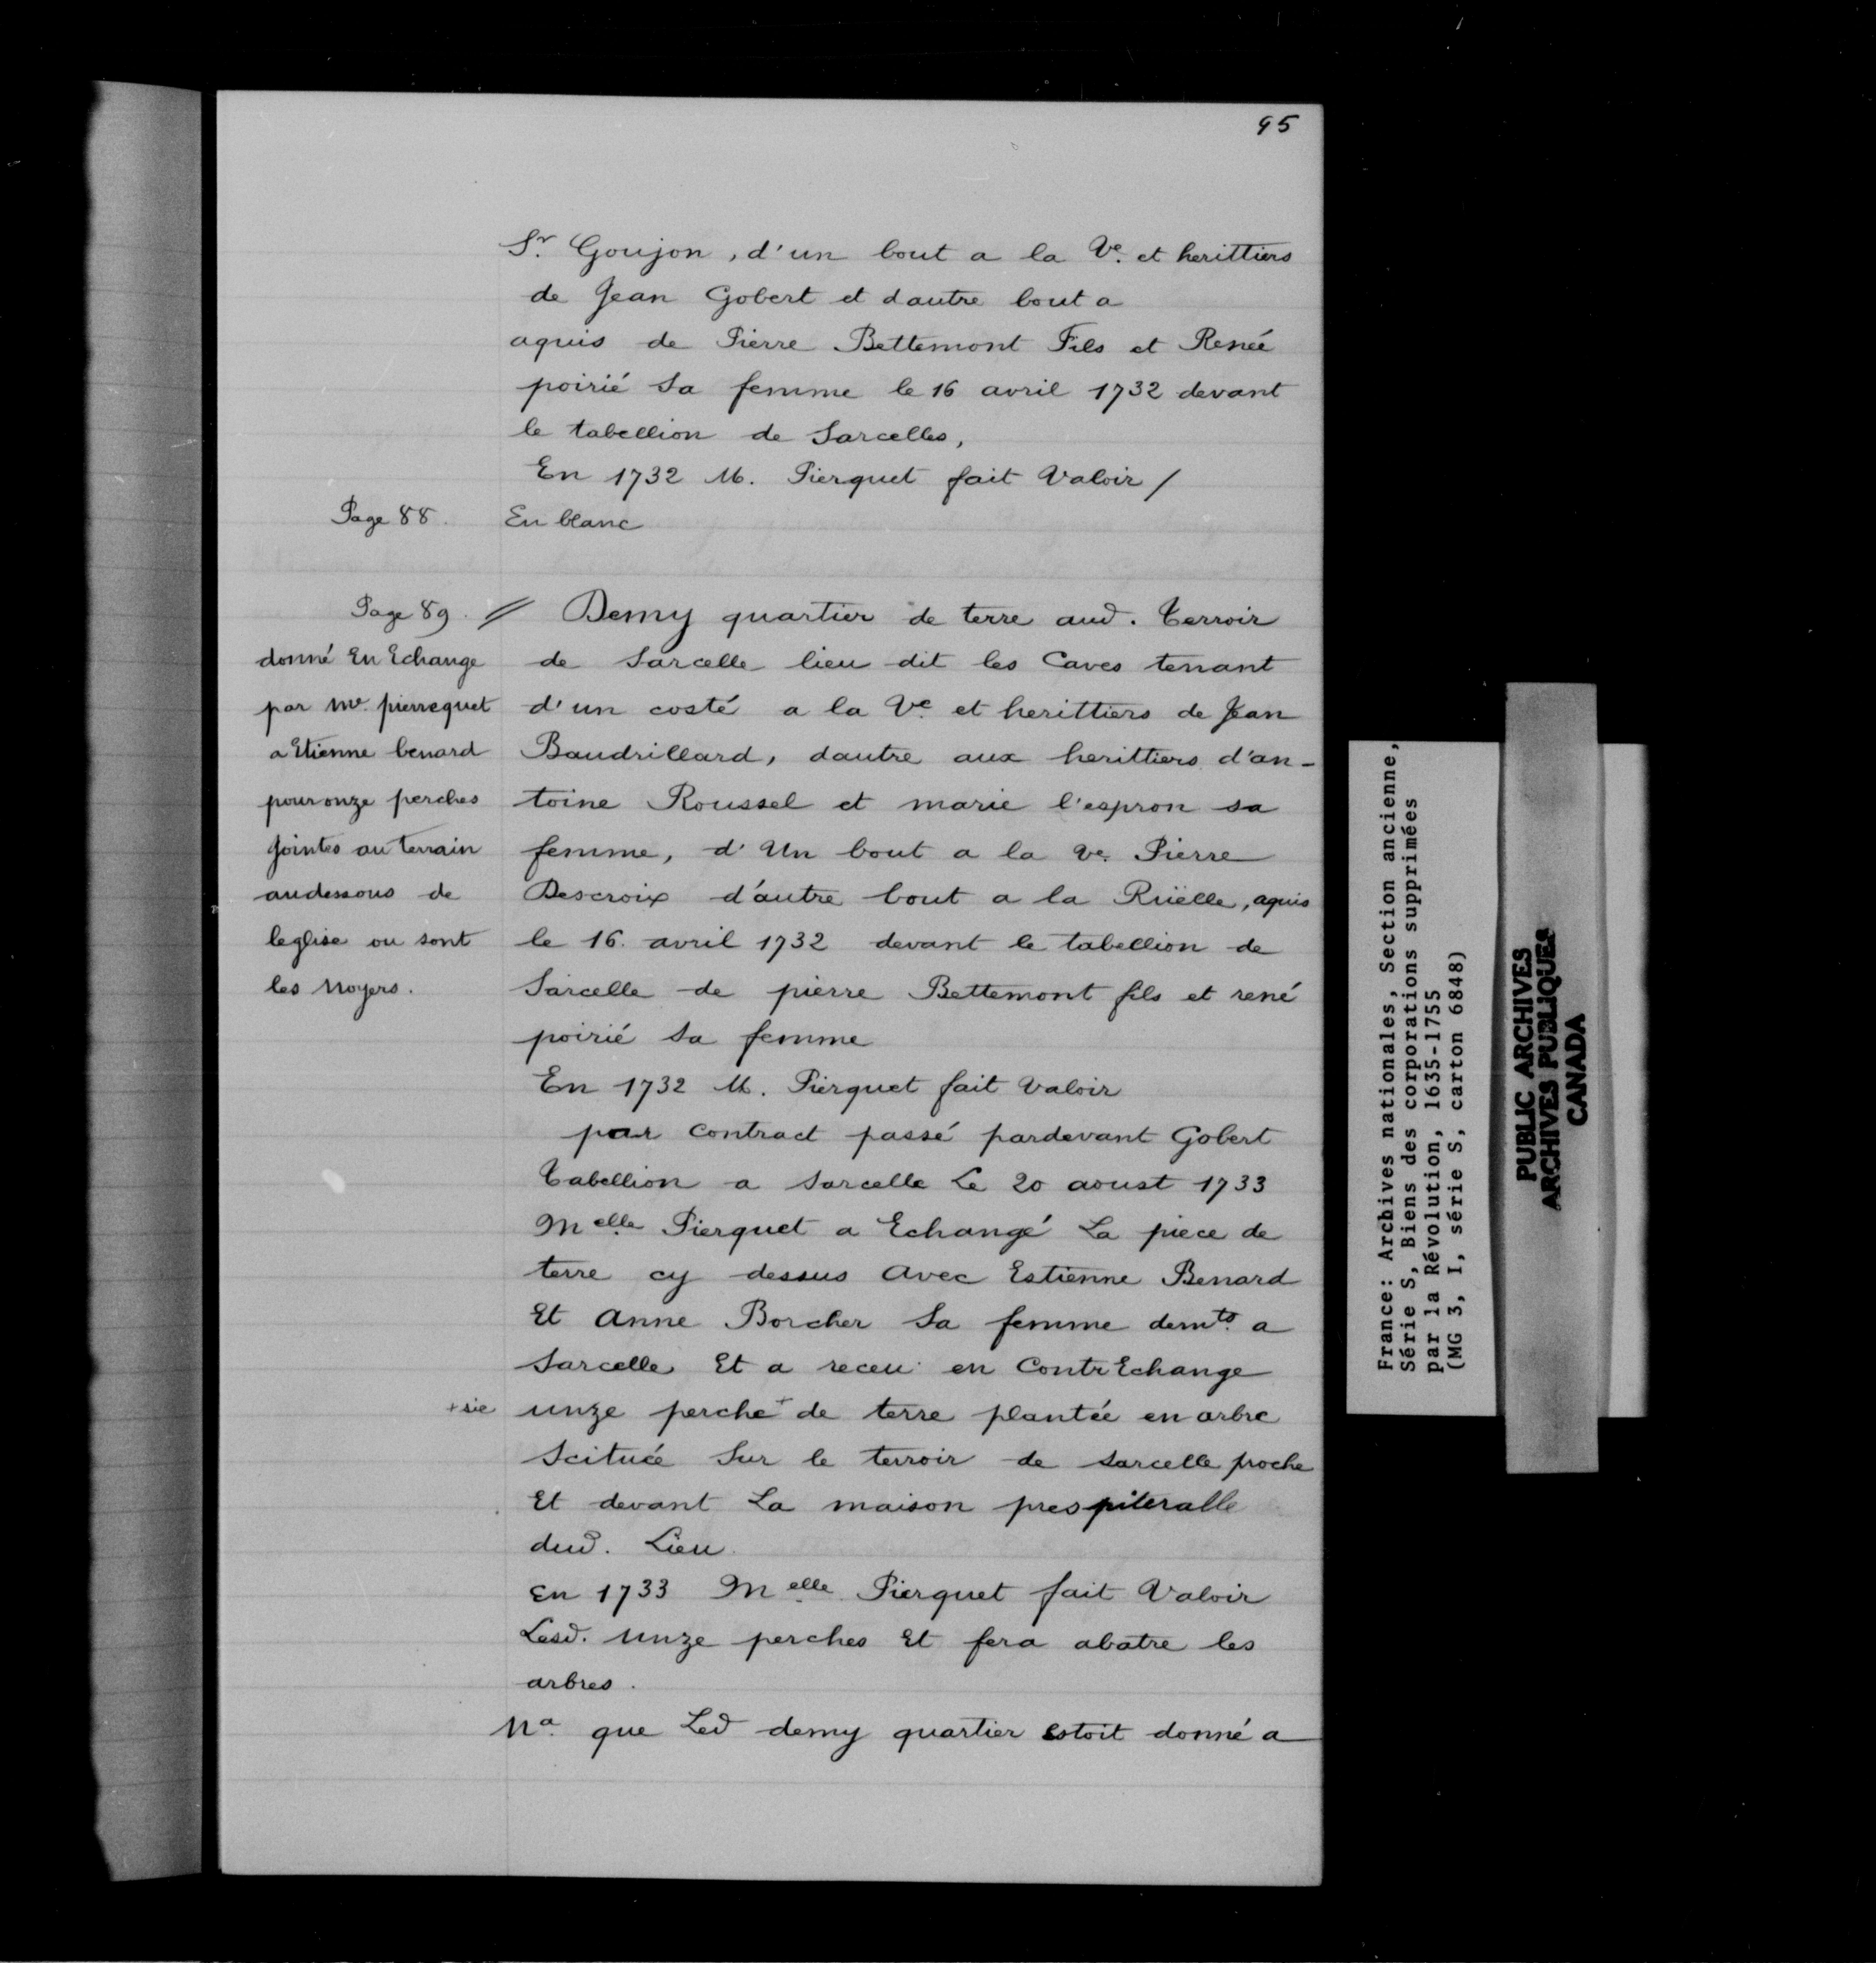 95
Sr. Goujon, d'un bout a la Ve. et herittiers
de Jean Gobert et dautre bout a
aquis de Pierre Bettemont Fils et Renée
poirié Sa femme le 16 avril 1732 devant
le tabellion de Sarcelles,
En 1732 M. Pierquet fait Valoir /
Page 88. En blanc
Page 89. // Demy quartier de terre aud. Terroir
de Sarcelle lieu dit les Caves tenant
d'un costé a la Ve. et herittiers de Jean
Baudrillard, dautre aux herittiers d'an-
toine Roussel et marie l'espron sa
femme, d'Un bout a la ve. Pierre
Descroix d'autre bout a la Rüelle, aquis
le 16. avril 1732 devant le tabellion de
Sarcelle de pierre Bettemont fils et rené
poirié Sa femme
En 1732 M. Pierquet fait Valoir
par Contract passé pardevant Gobert
Tabellion a Sarcelle Le 20 aoust 1733
Melle. Pierquet a Echangé La piece de
terre cy dessus Avec Estienne Benard
Et Anne Borcher Sa femme demts. a
Sarcelle Et a receu en ContrEchange
unze perche + de terre plantée en arbre
Scituée Sur le terroir de Sarcelle proche
Et devant La maison prespiteralle
dud. Lieu.
En 1733 Melle. Pierquet fait Valoir
Lesd. unze perches Et fera abatre les
arbres.
Na. que Led demy quartier Estoit donné a
donné En Echange
par me. pierrequet
a Etienne benard
pour onze perches
Jointes au terrain
audessous de
leglise ou sont
les Noyers.
+ sic
France: Archives nationales, Section ancienne,
Série S, Biens des corporations supprimées
par la Révolution, 1635-1755
(MG 3, I, série S, carton 6848)
PUBLIC ARCHIVES
ARCHIVES PUBLIQUES
CANADA